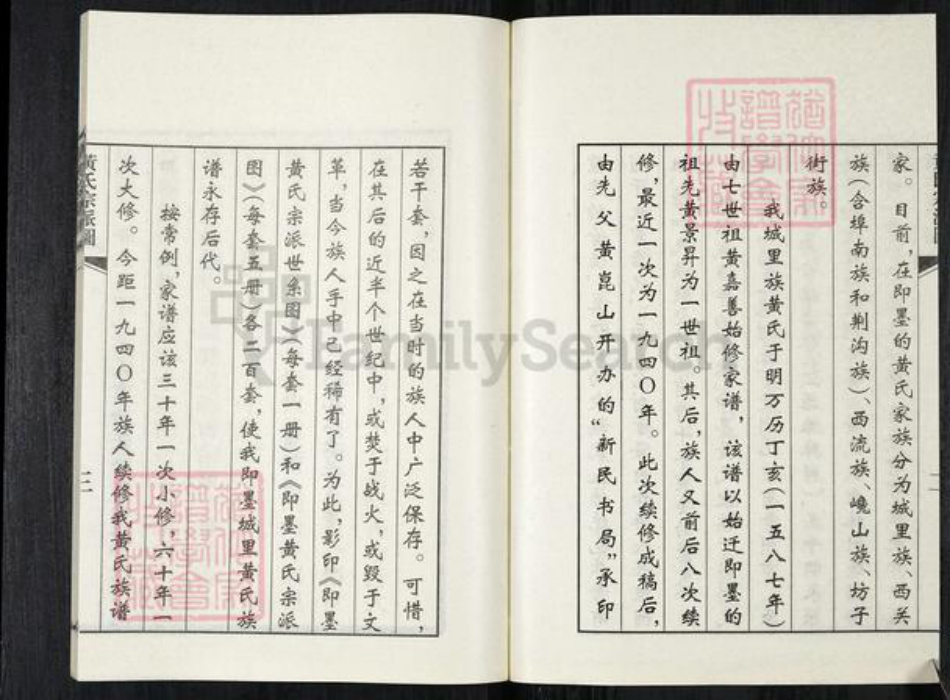 家。目前,在即墨的黄氏家族分为城里族、西关
族(含埠南族和荆沟族)、西流族、嶢山族、坊子
街族。
我城里族黄氏于明万历丁亥(一五八七年)
由七世祖黄嘉善始修家谱,该谱以始迁即墨的
祖先黄景昇为一世祖。其后,族人又前后八次续
修,最近一次为一九四〇年。此次续修成稿后,
由先父黄崑山开办的“新民书局”承印
若干套,因之在当时的族人中广泛保存。可惜,
在其后的近半个世纪中,或焚于战火,或毁于文
革,当今族人手中已经稀有了。为此,影印《即墨
黄氏宗派世系图》(每套一册)和《即墨黄氏宗派
图》(每套五册)各二百套,使我即墨城里黄氏族
谱永存后代。
按常例,家谱应该三十年一次小修,六十年一
次大修。今距一九四〇年族人续修我黄氏族谱
黄氏宗派图
二
FamilySearch